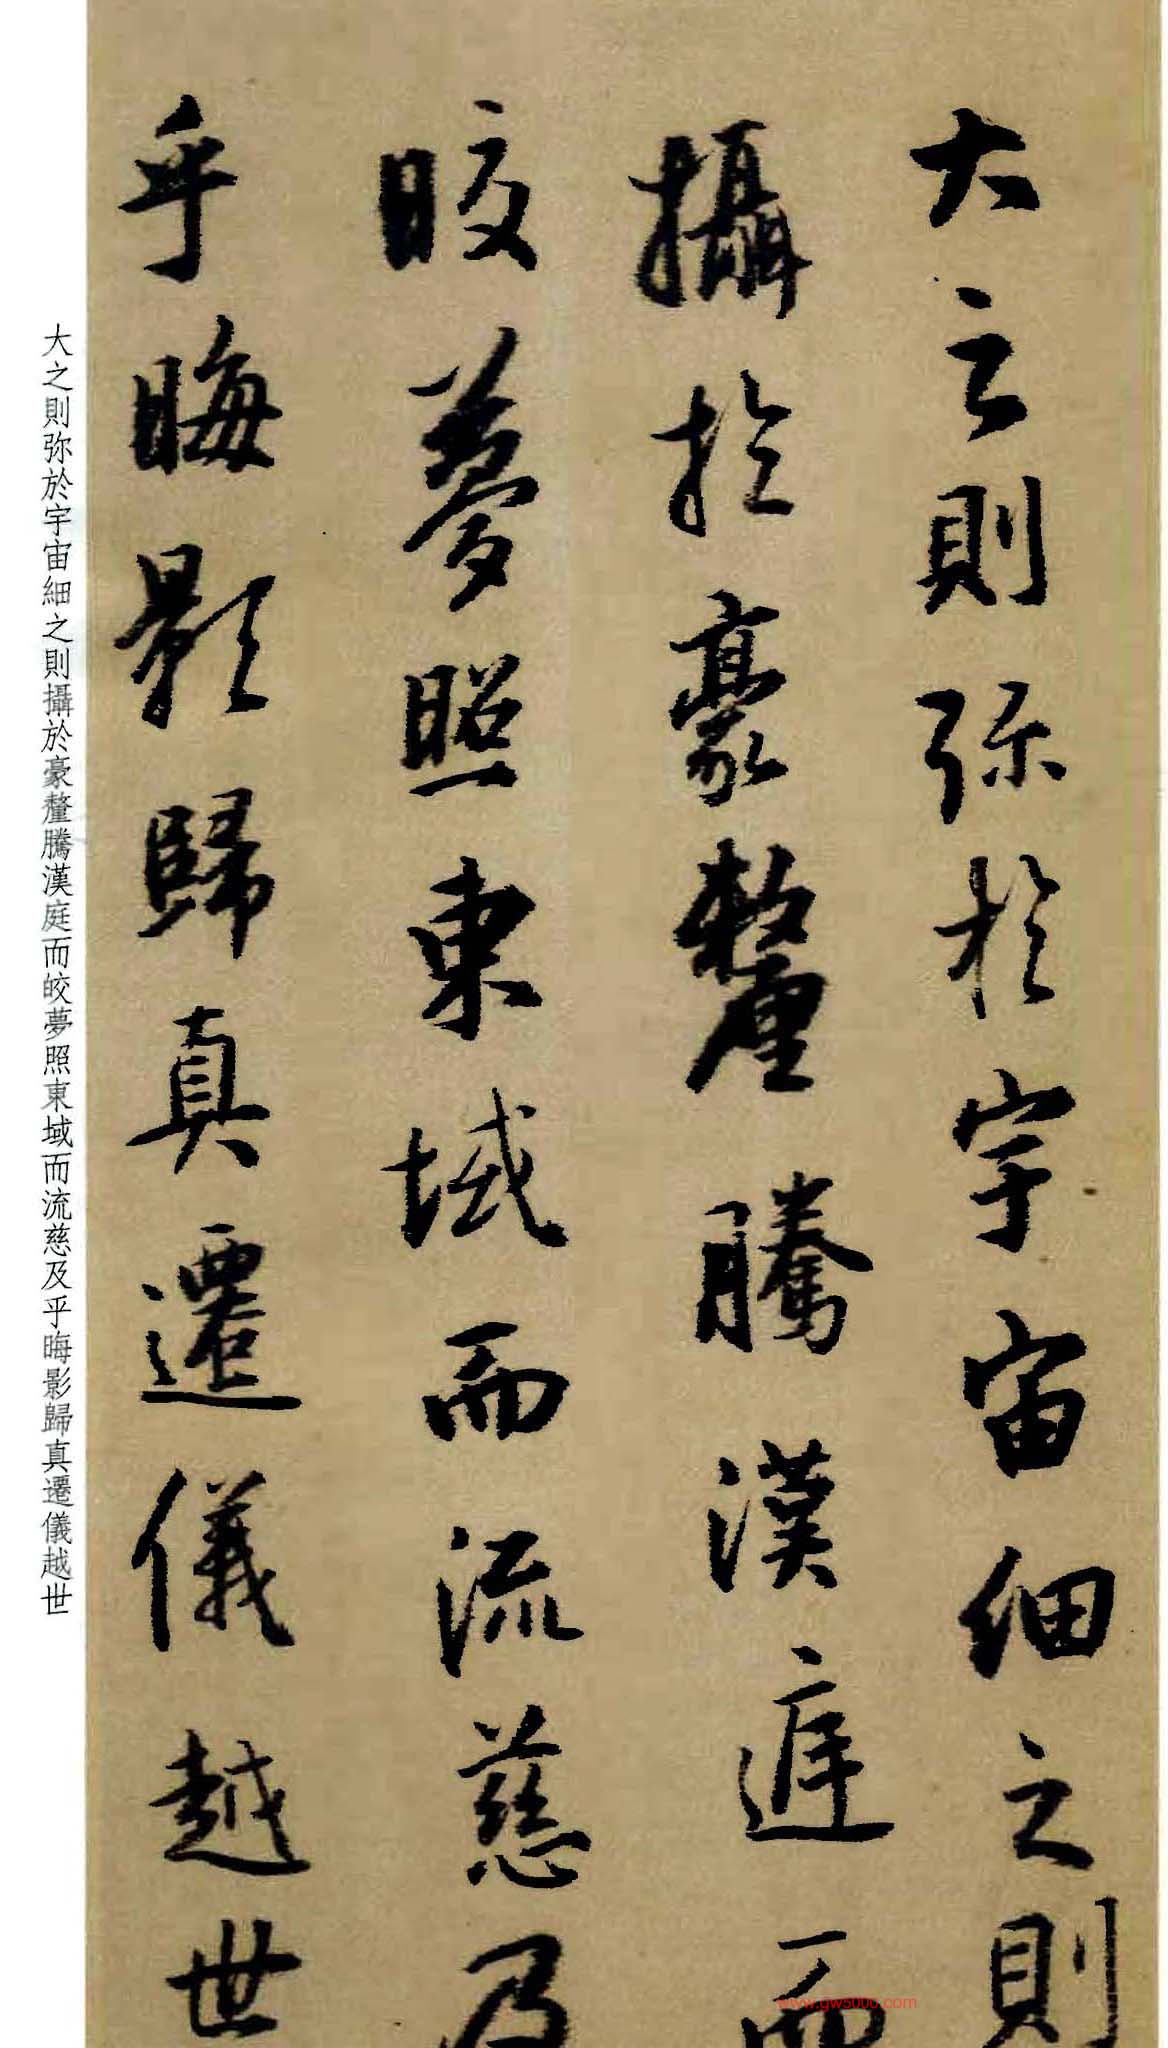 大之則弥於宇宙細之則
攝於豪釐騰漢庭而
皎夢照東域而流慈及
乎晦影歸真遷儀越世
大之則弥於宇宙細之則攝於豪釐騰漢庭而皎夢照東域而流慈及乎晦影歸真遷儀越世
www.gw5000.com